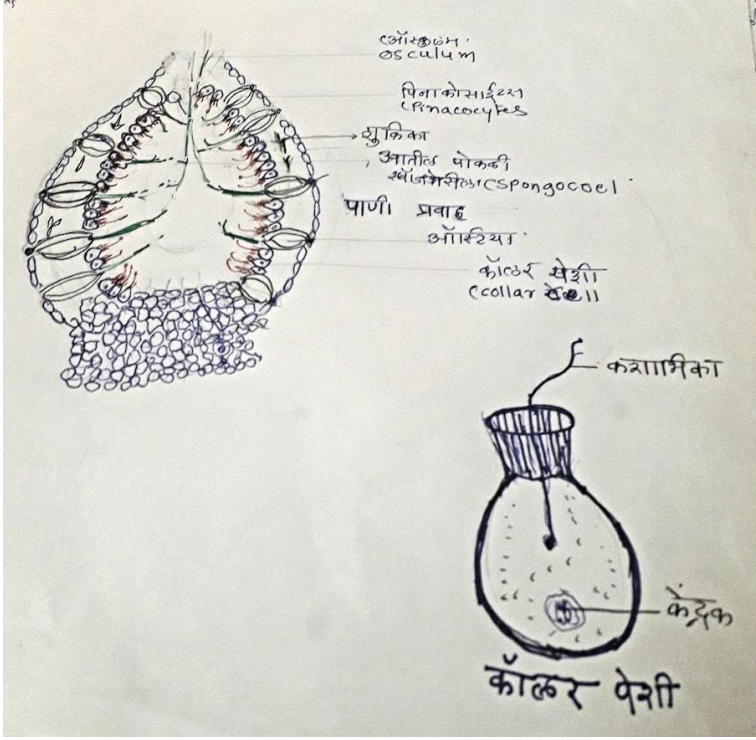 (ऑस्कुलम
osculum
पिनाकोसाईट्स
(Pinacocytes
शुकिका
आतील पोकळी
स्पंजगोहिला (Spongocoel
पाणी प्रवाह
ऑस्टिया
कॉलर पेशी
(collar
कशाभिका
केंद्रक
कॉलर पेशी